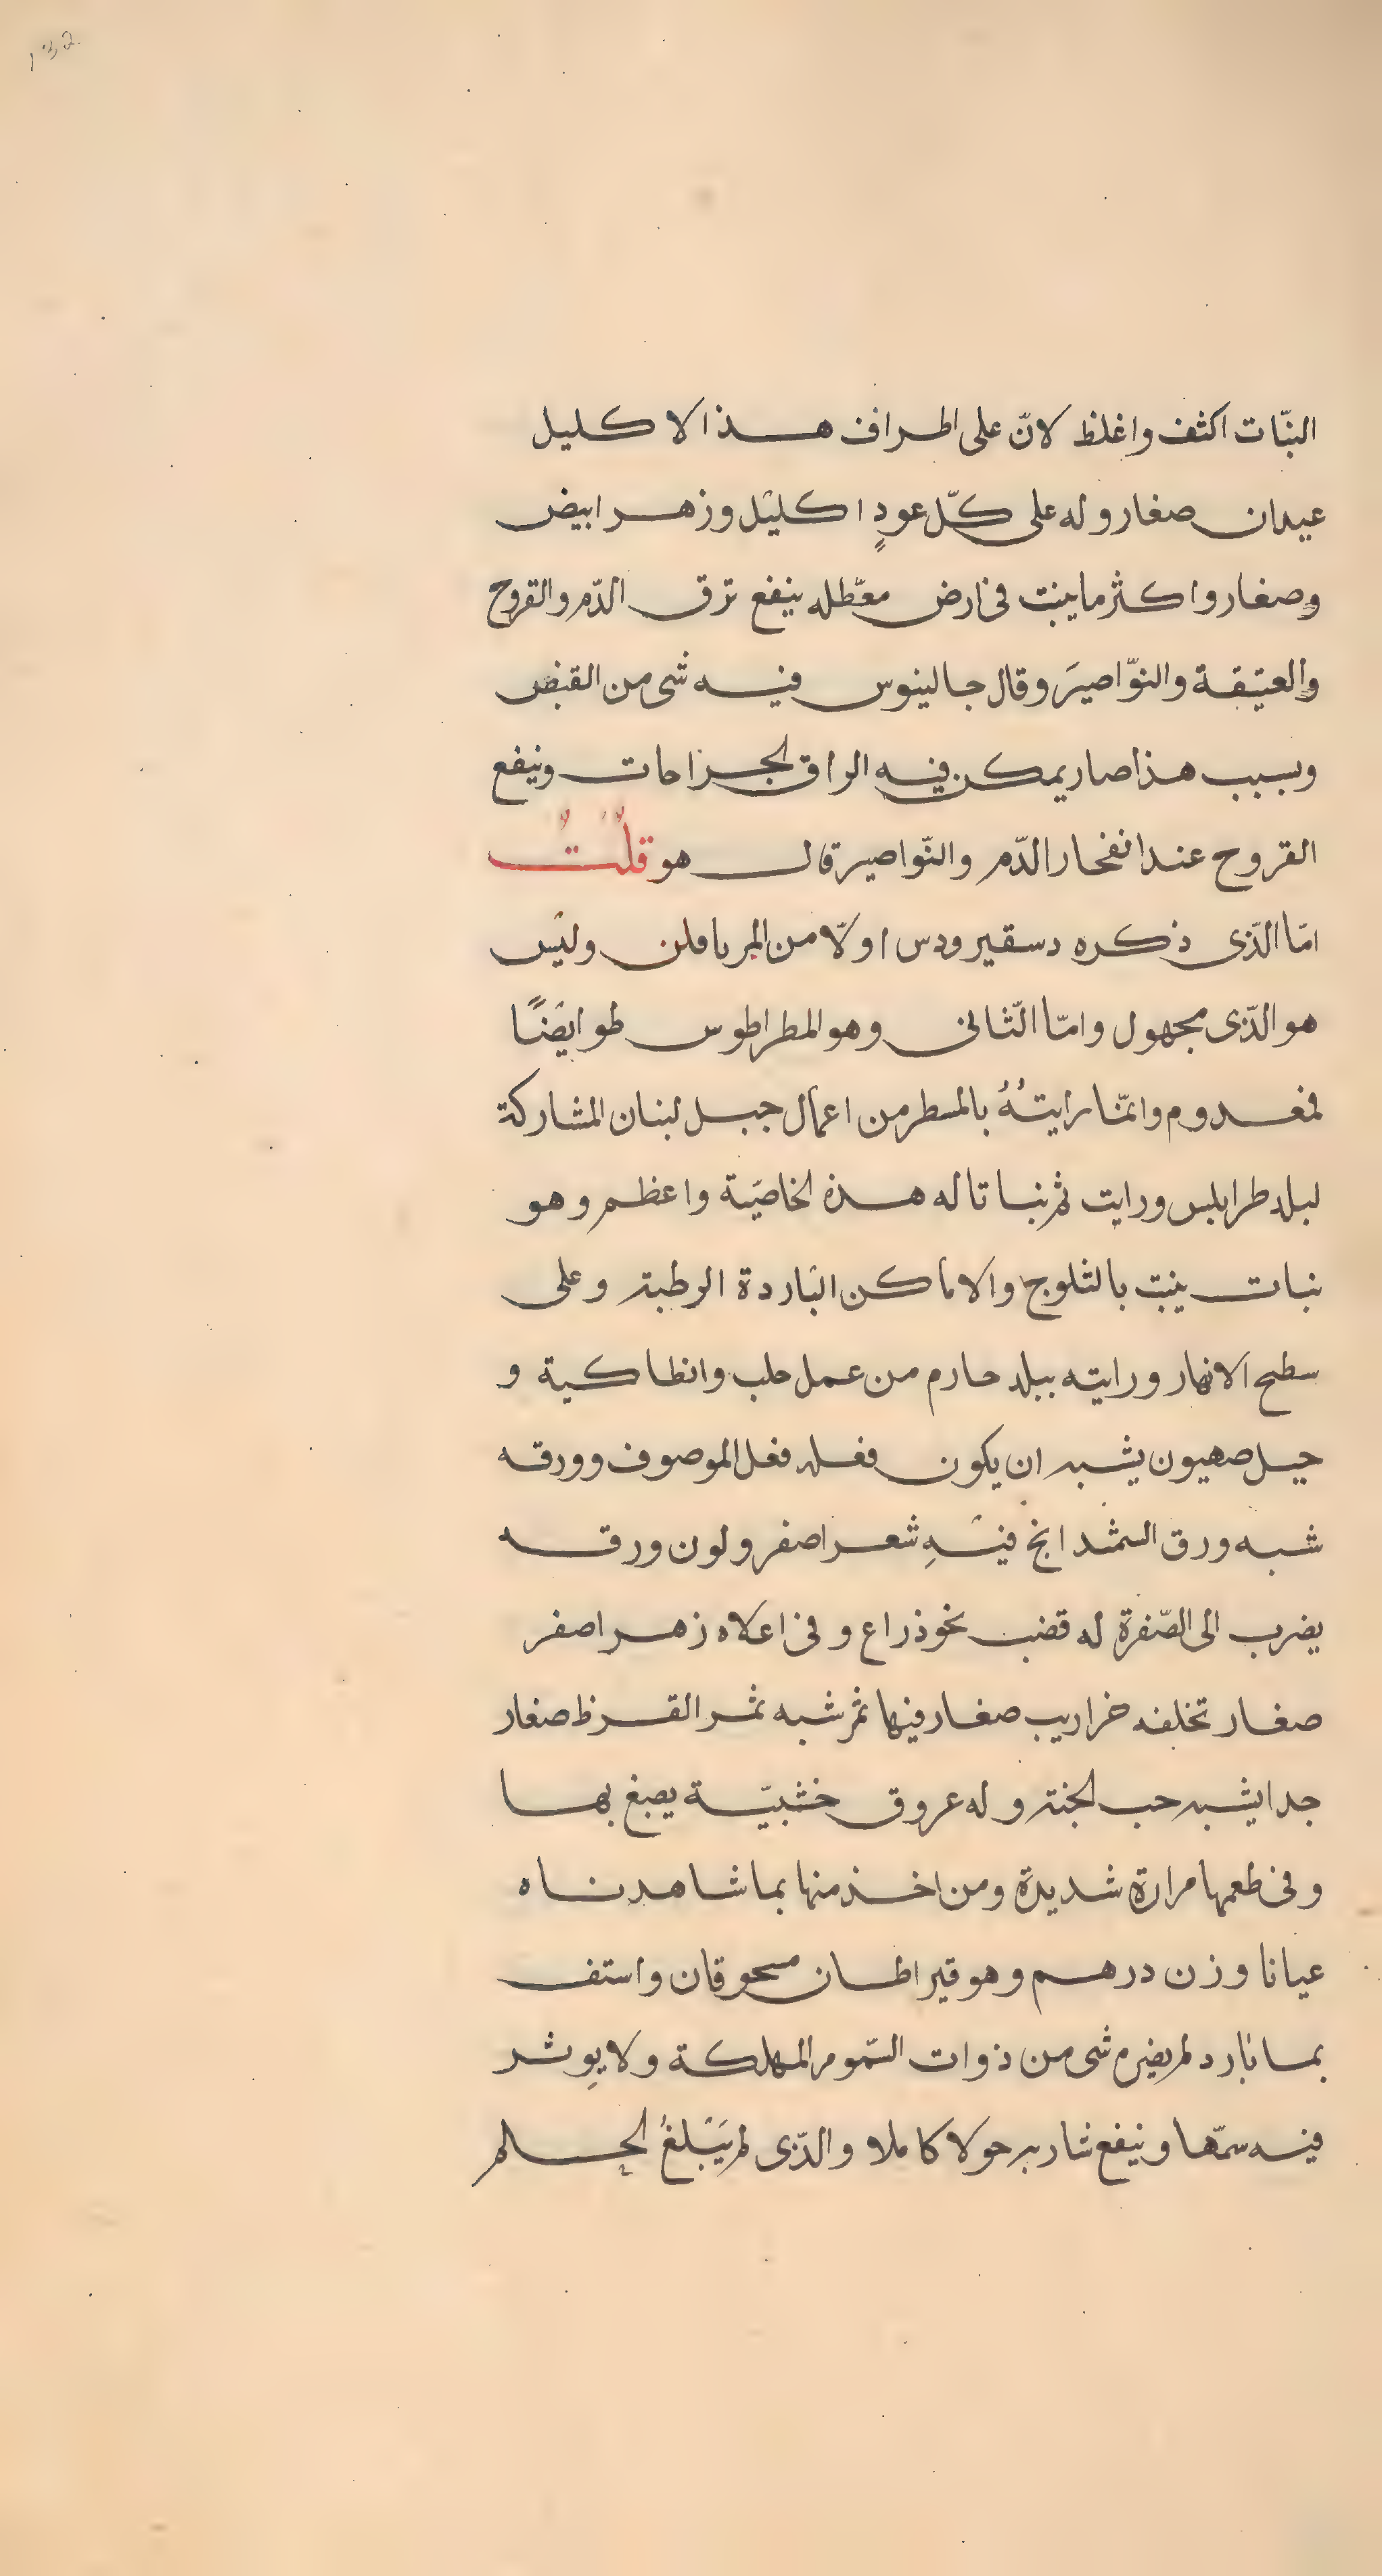 132
النبّات اكثف واغلظ لانّ على اطراف هذا الاكليل
عيدان صغار وله على كلّ عودٍ اكليل وزهر ابيض
وصغار واكثر ما ينبت فى ارض معطّله ينفع نزق الدّم والقروح
والعتيقة والنوّاصيرَ وقال جالينوس فيه شى من القبض
وبسبب هذا صار يمكن فيه الزاق الجراحات وينفع
القروح عند انفجار الدّم والنّواصير قال هو قلتُ
امّا الّذى ذكره دسقيرودس اولّا من المريافلن وليس
هو الّذى مجهول وامّا الثّانى وهو المطراطوس طو ايضًا
فمعدوم وانمّا رايتهُ بالمسطر من اعمال جبل لبنان المشاركة
لبلد طرابلس ورايت ثم نباتا له هذه الخاصيّة واعظم وهو
نبات ينبت بالثلوج والاماكن الباردة الرطبة وعلى
سطح الانهار ورايته ببلد حارم من عمل حلب وانطاكية و
جبل صهيون يشبه ان يكون فعله فعل الموصوف وورقه
شبه ورق فيهِ شعر اصفر ولون ورقه
يضرب الى الصّفرة له قضب نحو ذراع وفى اعلاه زهر اصفر
صغار تخلفه خراريب صغار فيها ثمر شبه ثمر القرظ صغار
جدا يشبه حب الجنة وله عروق خشبيّة يصبغ بها
وفى طعمها مرارة شديدة ومن اخذ منها بما شاهدناه
عيانا وزن درهم وهو قيراطان مسحوقان واستف
بما بارد لم يضره شى من ذوات السّموم المهلكة ولا يوثر
فيه سمّها وينفع شاربه حولا كاملا والّذى لم يَبْلغُ الحلم